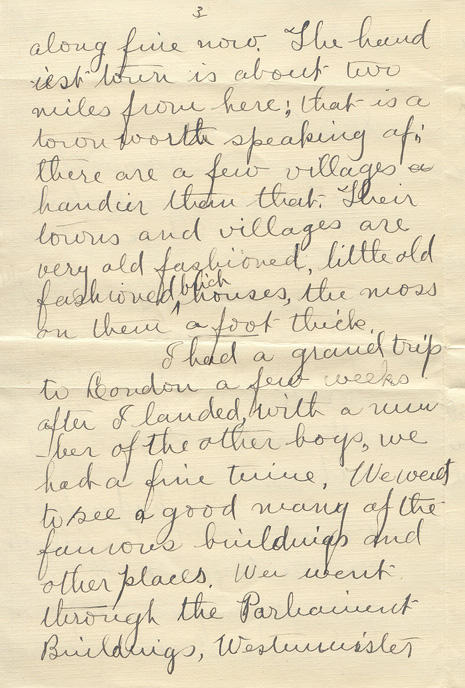 3
along fine now. The hand
iest town is about two
miles from here; that is a
town worth speaking of;
there are a few villages a
handier than that. Their
towns and villages are
very old fashioned, little old
fashioned brick houses, the moss
on them a foot thick.
I had a grand trip
to London a few weeks
after I landed, with a num
-ber of the other boys, we
had a fine time, We went
to see a good many of the
famous buildings and
other places. We went
through the Parliament
Buildings, Westminister